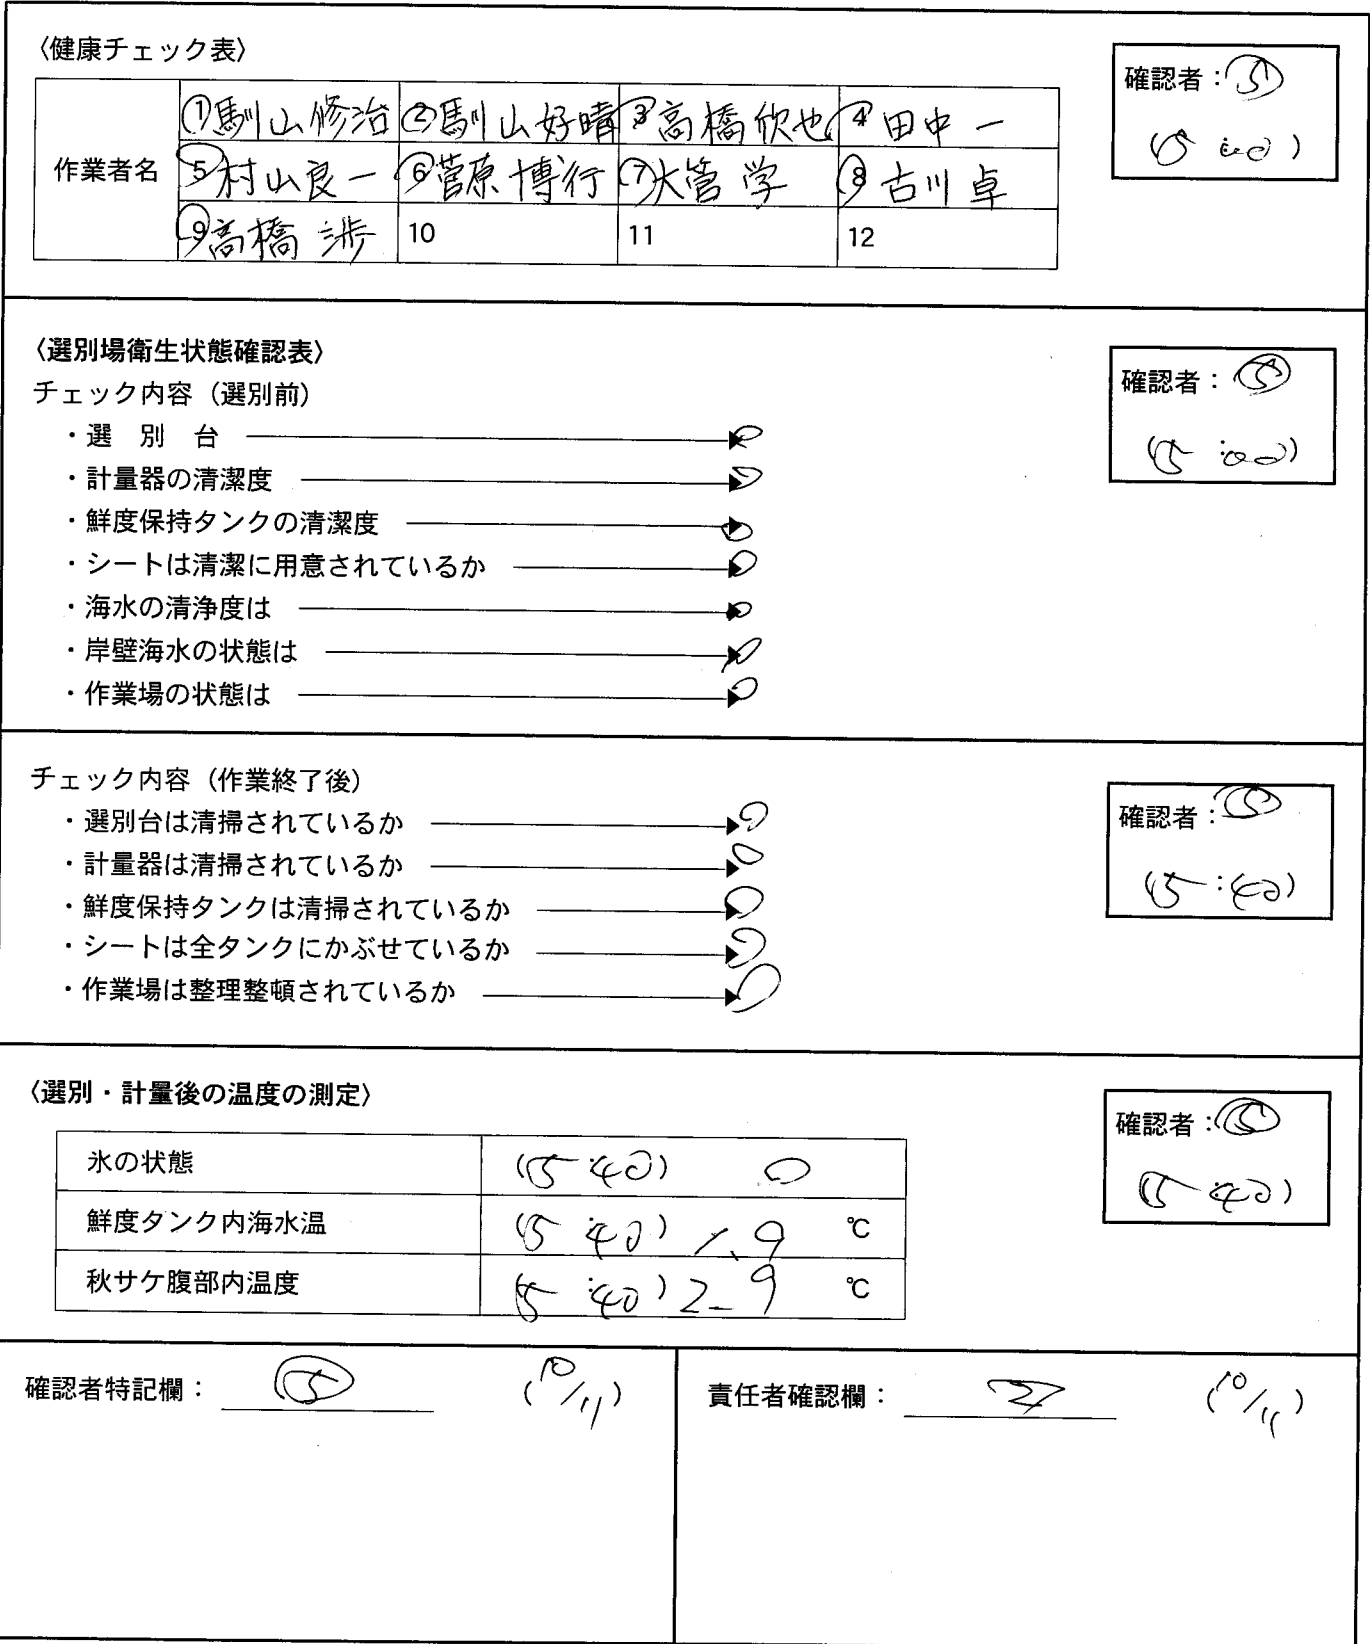 〈健康チェック表〉
確認者：⑤
(5:00)
作業者名
①馴山修治 ②馴山好晴 ③高橋欣也 ④田中一
⑤村山良一 ⑥菅原博行 ⑦大管学 ⑧古川卓
⑨高橋渉 10 11 12
〈選別場衛生状態確認表〉
確認者：⑤
(5:00)
チェック内容（選別前）
・選別台 ○
・計量器の清潔度 ○
・鮮度保持タンクの清潔度 ○
・シートは清潔に用意されているか ○
・海水の清浄度は ○
・岸壁海水の状態は ○
・作業場の状態は ○
チェック内容（作業終了後）
確認者：⑤
(5:40)
・選別台は清掃されているか ○
・計量器は清掃されているか ○
・鮮度保持タンクは清掃されているか ○
・シートは全タンクにかぶせているか ○
・作業場は整理整頓されているか ○
〈選別・計量後の温度の測定〉
確認者：⑤
(5:40)
氷の状態 (5:40) ○
鮮度タンク内海水温 (5:40) 1.9 ℃
秋サケ腹部内温度 (5:40) 2.9 ℃
確認者特記欄： ⑤ (10/11)
責任者確認欄： (10/11)